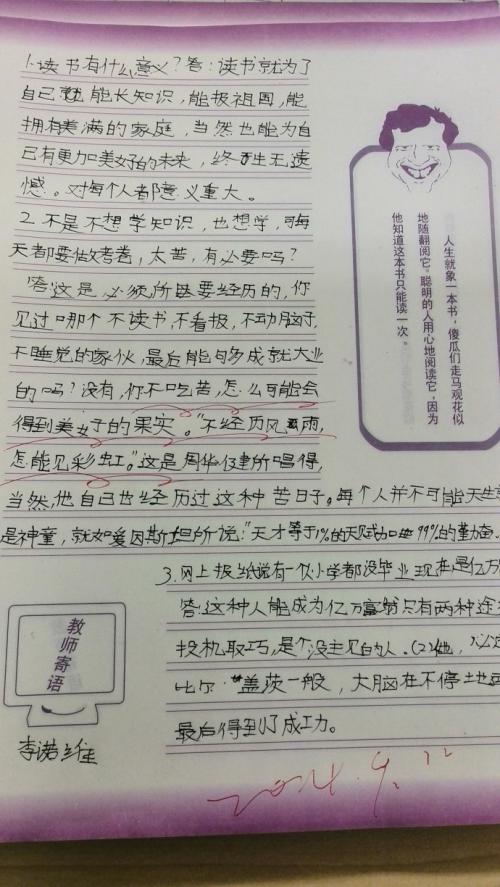 1.读书有什么意义？答：读书就为了
自己就能长知识，能报祖国，能
拥有美满的家庭，当然也能为自
己有更加美好的未来，终生无遗
憾。对每个人都意义重大。
2.不是不想学知识，也想学，可每
天都要做考卷，太苦，有必要吗？
答：这是必须所要经历的，你
见过哪个不读书，不看报，不动脑子，
不睡觉的家伙，最后能够成就大业
的吗？没有，你不吃苦，怎么可能会
得到美好的果实。“不经历风雨，
怎能见彩虹。”这是周华健所唱得，
当然，他自己也经历过这种苦日子。每个人并不可能天生
是神童，就如爱因斯坦所说：“天才等于1%的天赋加 99%的勤奋。
3.网上报纸说有一个小学都没毕业现在是亿万
答：这种人能成为亿万富翁只有两种途
投机取巧，是个没主见的人。(2)他，必
比尔·盖茨一般，大脑在不停土地
最后得到了成功。
人生就象一本书，傻瓜们走马观花似
地随翻阅它。聪明的人用心地阅读它，因为
他知道这本书只能读一次。
教师寄语
李诺维
2014.9.12